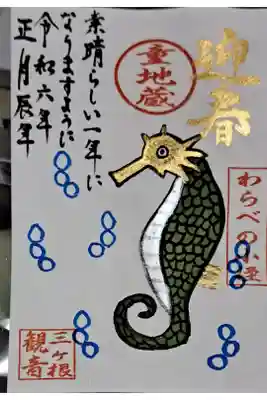 迎春
童地蔵
素晴らしい一年に
なりますように
令和六年
正月辰年
わらべの小径
三ヶ根
観音